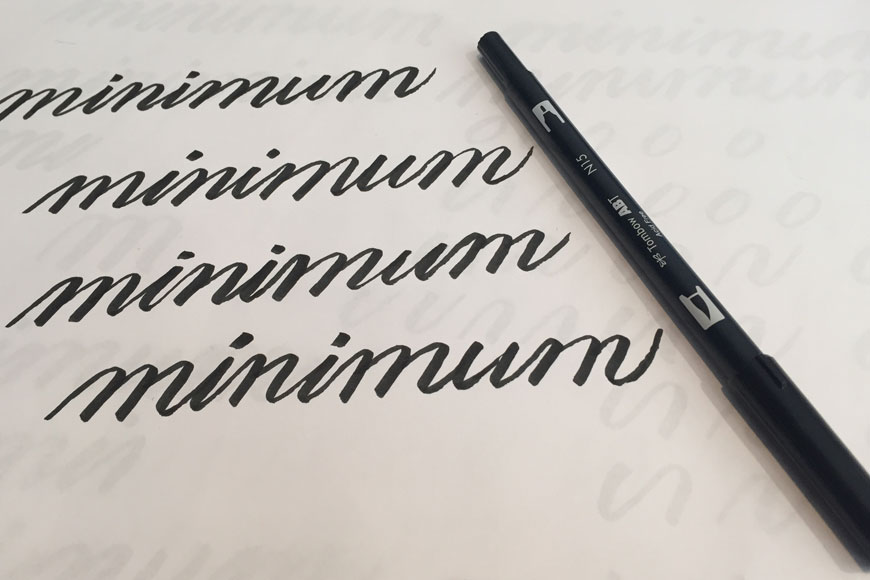 minimum
minimum
minimum
minimum
N15
Tombow ABT
Acid Free